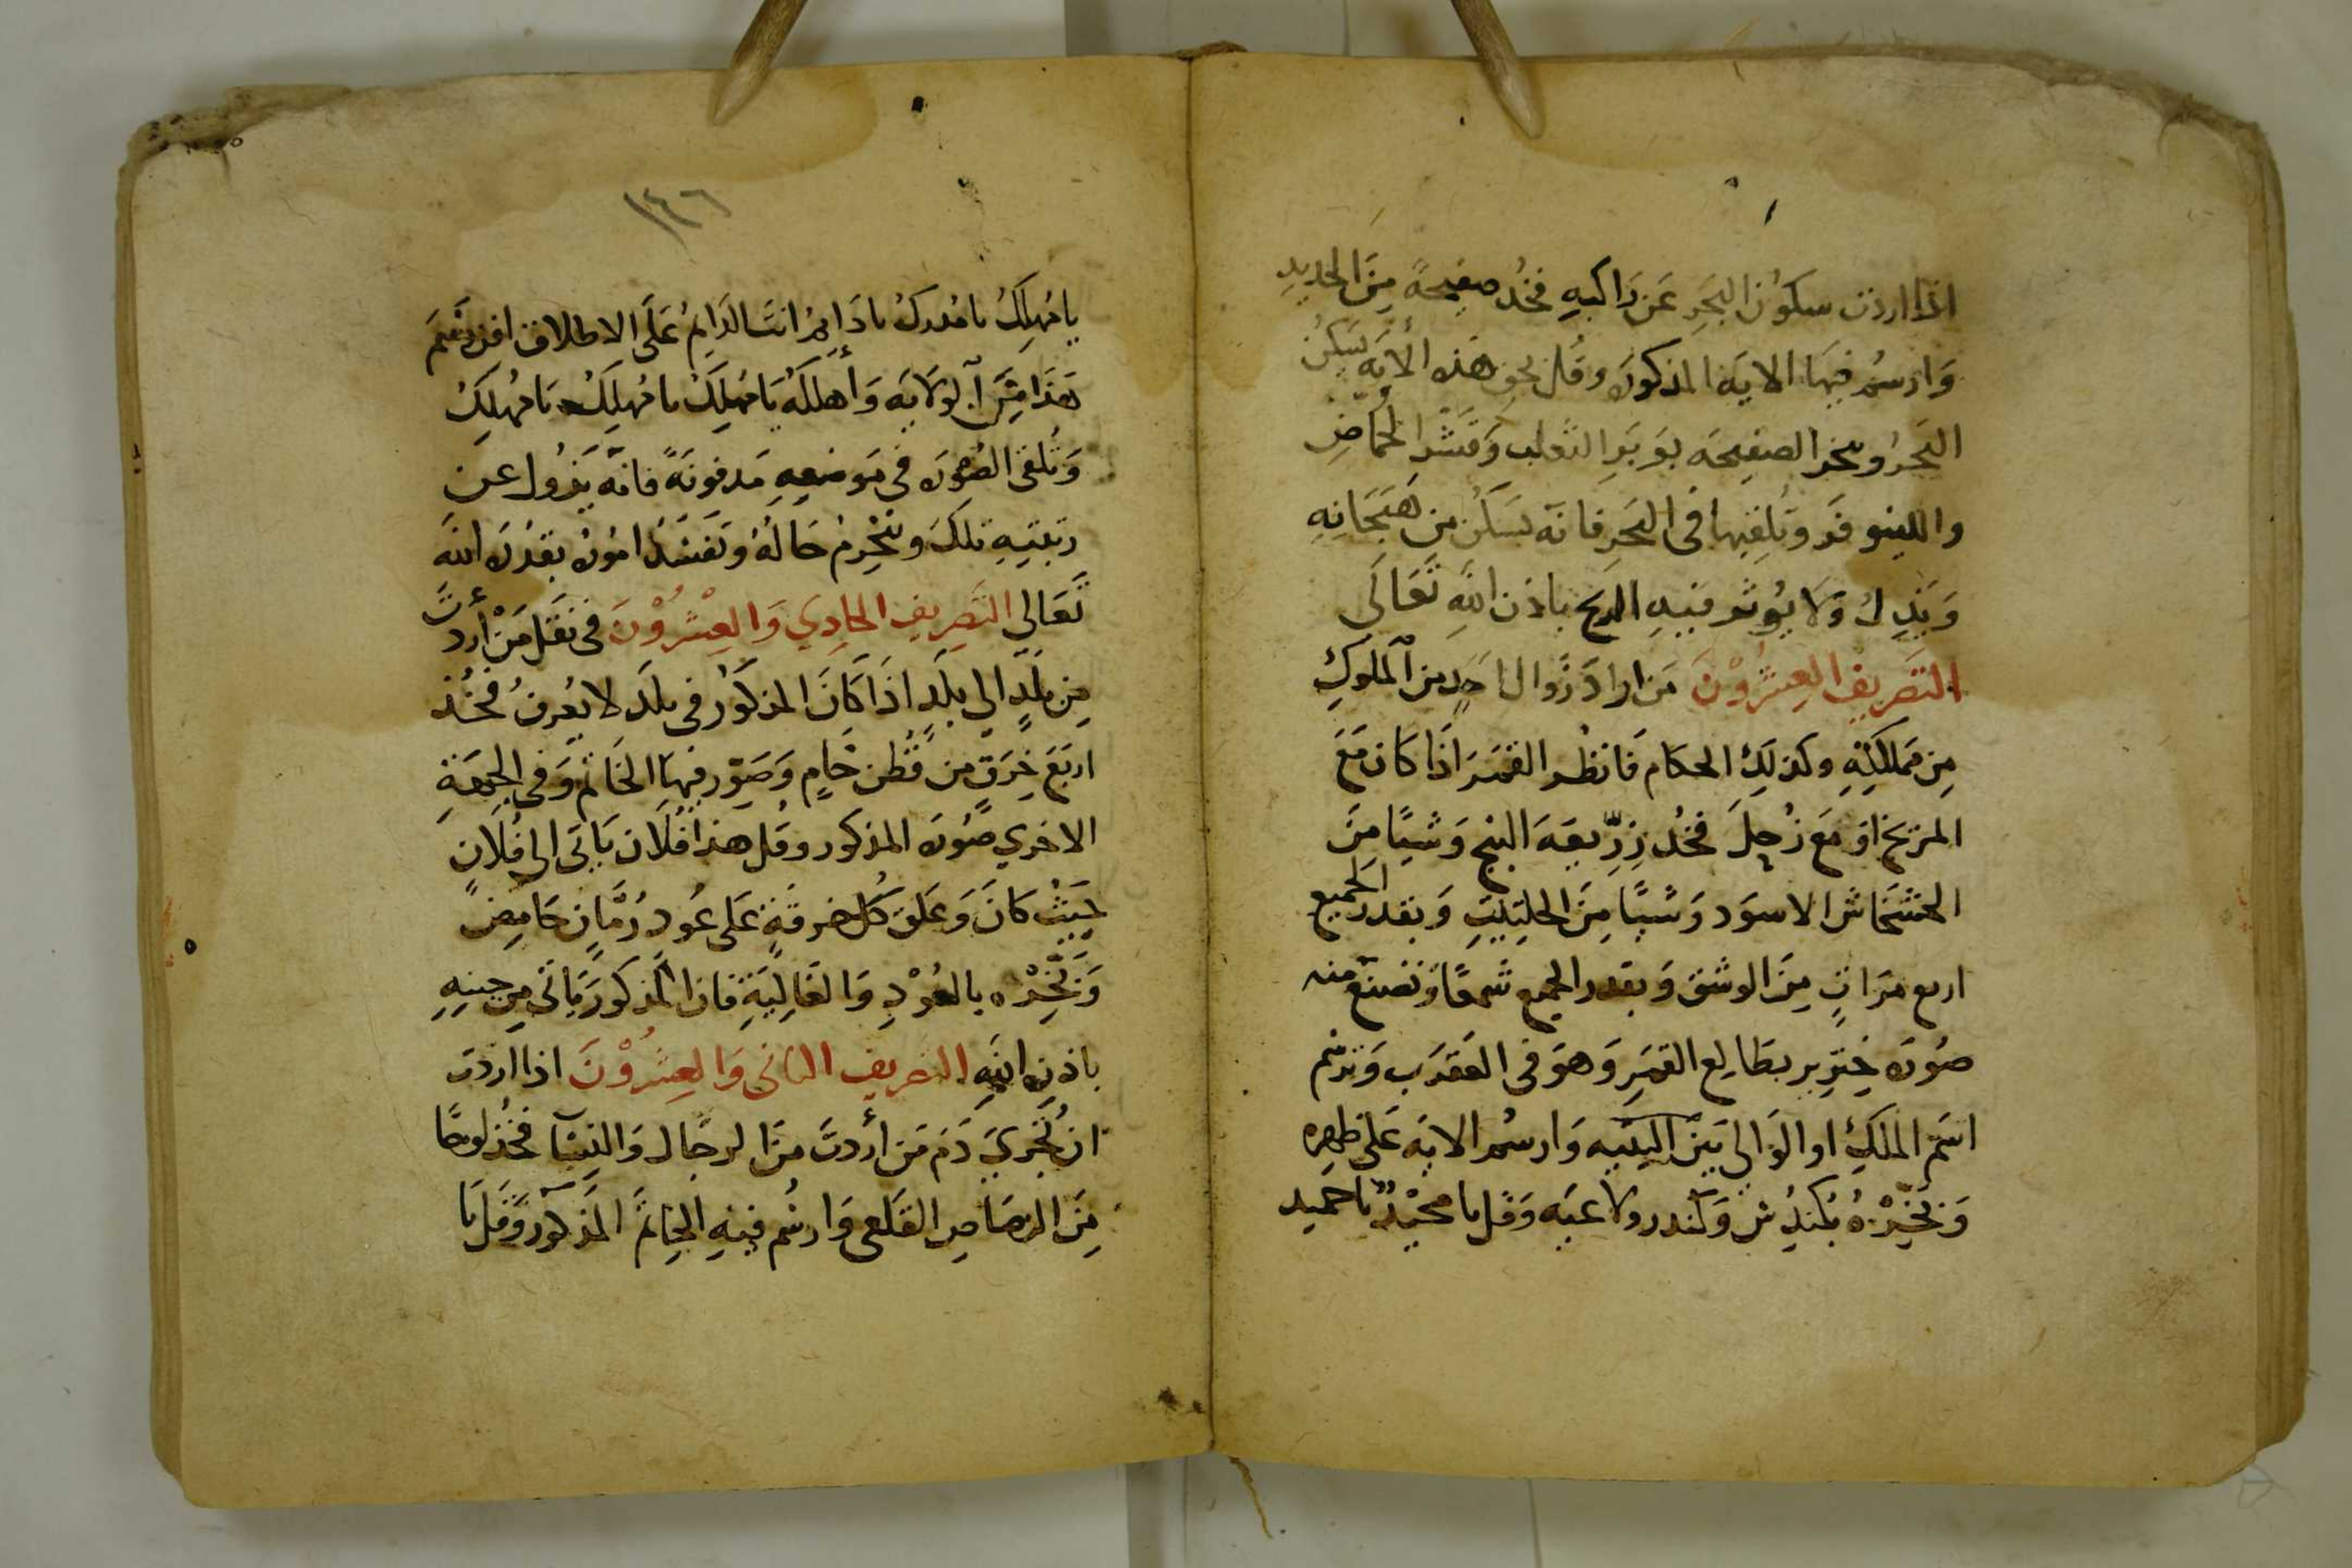 اذا اردت سكون البحر عن راكبه فخذ صفيحة من الحديد
وارسم فيها الايه المذكوره وقل بحق هذه الأيه يسكن
البحر وبخر الصفيحه بوبر الثعلب وقشر الحماض
واللينوفر وتلقيها فى البحر فانه يسكن من هيجانه
ولا يوثر فيه الريح باذن الله تعالى
التصريف العشرون من اراد زوال احد من الملوك
من مملكته وكذلك الحكام فانظر القمر اذا كان مع
المريخ او مع زحل فخذ زريعة البنج وشيا من
الخشخاش الاسود وشيا من الحلتيت وبقدر الجميع
اربع مرات من الوشق وبقدر الجميع شمعا وتصنع منه
صوره خنزير بطالع القمر وهو فى العقرب وترسم
اسم الملك او الوالى بين اليتيه وارسم الايه على ظهره
وتبخره بكندش وكندر ولاعيه وقل يا مجيد يا حميد
١٤٦
يا مهلك يا مدرك يا دايم انت الدايم على الاطلاق
هذا من الولايه وأهلكه يا مهلك يا مهلك يا مهلك
وتلقى الصوره فى موضعه مدفونة فانه يزول عن
رتبتيه تلك وينخرم حاله وتفسد اموره بقدرة الله
تعالي التصريف الحادي والعشرون فى نقل من أردت
من بلد الي بلد اذا كان المذكور فى بلد لا يعرف فخذ
اربع خرق من قطن خام وصور فيها الخاتم وفى الجهة
الاخري صوره المذكور وقل هذا فلان ياتى الى فلان
حيث كان وعلق كل خرقة على عود رمان حامض
وتبخره بالعود والغالية فان المذكور ياتى من حينه
باذن الله التصريف الثانى والعشرون اذا اردت
ان تجري دم من أردت من الرجال والنسا فخذ لوحا
من الرصاص القلعى وارسم فيه الخاتم المذكور وقل يا